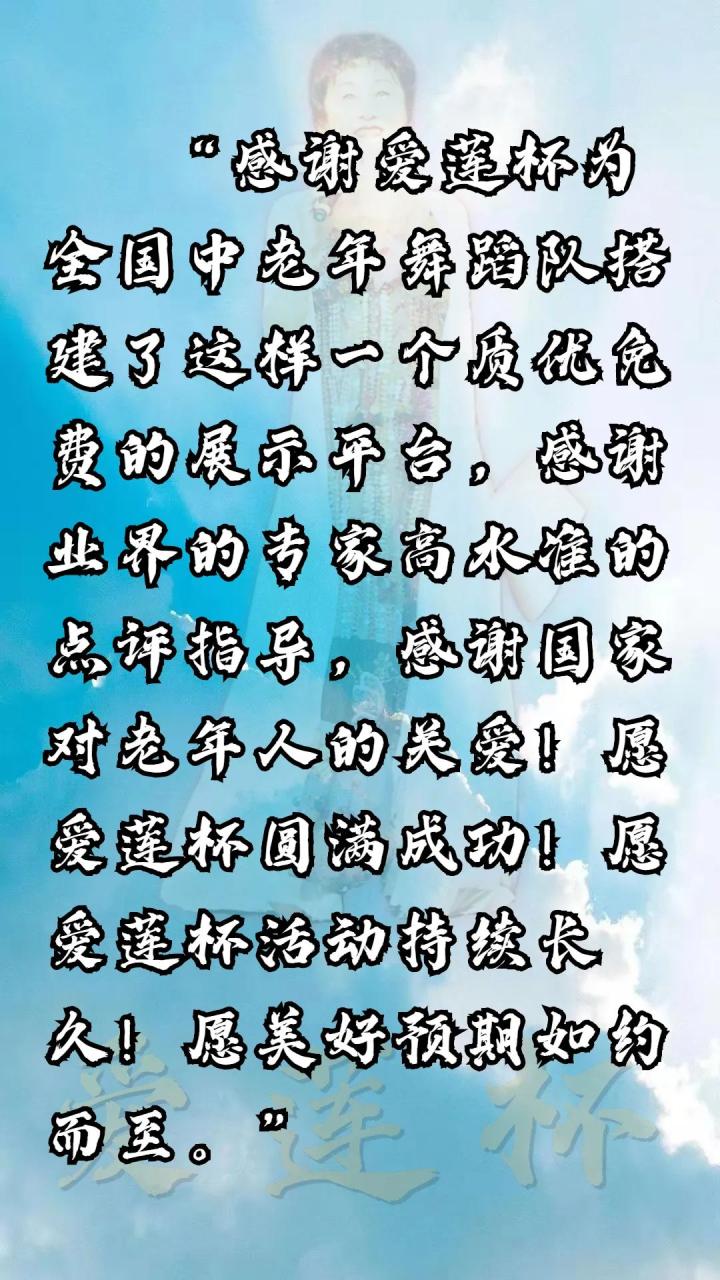 “感谢爱莲杯为
全国中老年舞蹈队搭
建了这样一个质优免
费的展示平台，感谢
业界的专家高水准的
点评指导，感谢国家
对老年人的关爱！愿
爱莲杯圆满成功！愿
爱莲杯活动持续长
久！愿美好预期如约
而至。”
爱莲杯